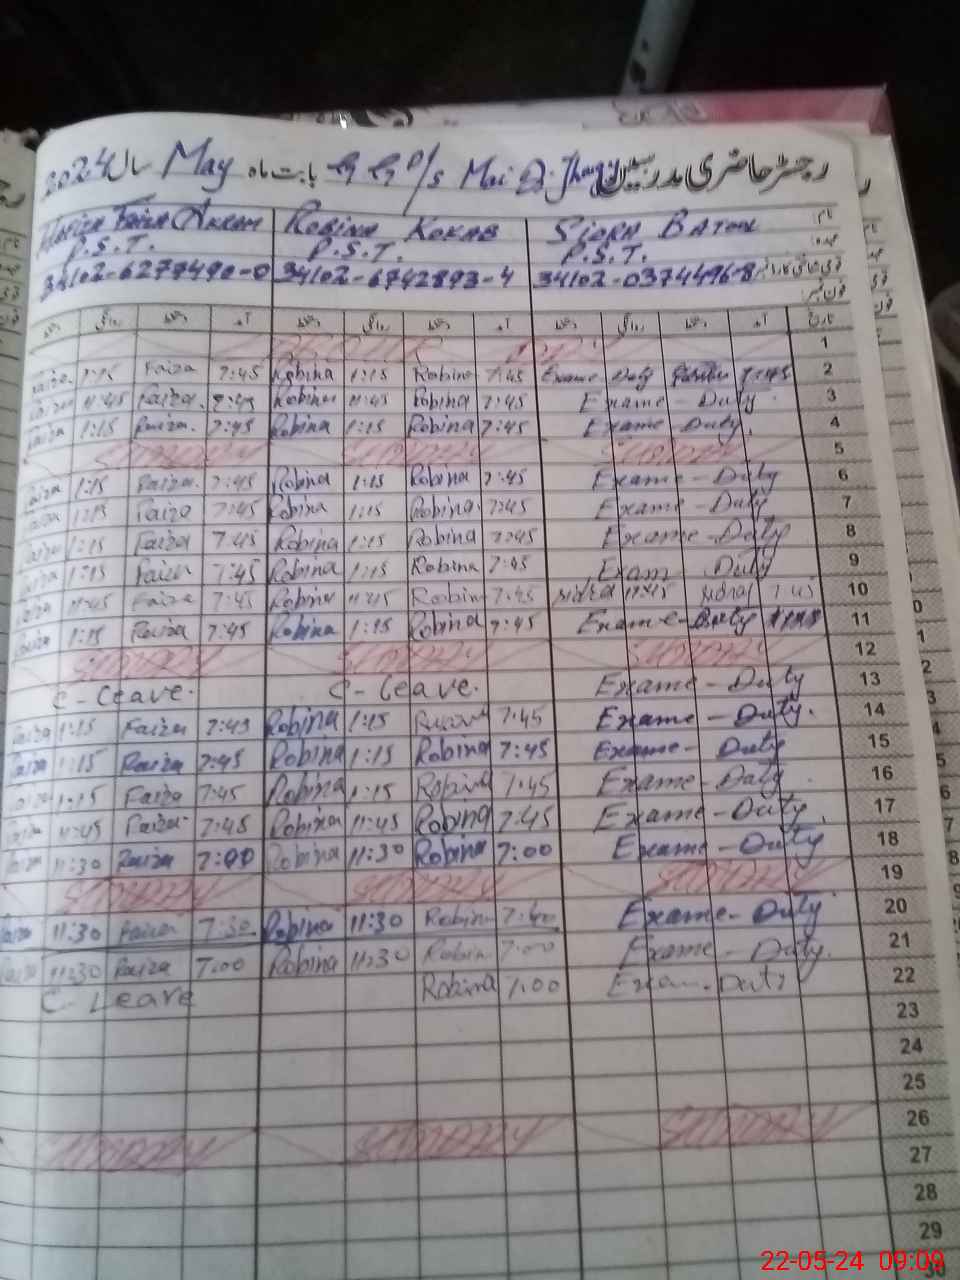 رجسٹر حاضری مدرسین G G P/S Mai D. Jhang بابت ماہ May سال 2024
نام Sidra Batool Robina Kokab Hafiza Faiza Akram
عہدہ P.S.T. P.S.T. P.S.T.
34102-0374496-8 34102-6742893-4 34102-6279490-0
تاریخ آمد دستخط روانگی دستخط آمد دستخط روانگی دستخط آمد دستخط روانگی دستخط
1
Faiza 1:15 Faiza 7:45 Robina 1:15 Robina 7:45 Exame Duty 7:45 2
Faiza 11:45 Faiza 7:45 Robina 11:45 Robina 7:45 Exame - Duty 3
Faiza 1:15 Faiza 7:45 Robina 1:15 Robina 7:45 Exame - Duty. 4
SUNDAY SUNDAY SUNDAY 5
Faiza 1:15 Faiza. 7:45 Robina 1:15 Robina 7:45 Exame - Duty 6
Faiza 1:15 Faiza 7:45 Robina 1:15 Robina 7:45 Exame - Duty 7
Faiza 1:15 Faiza 7:45 Robina 1:15 Robina 7:45 Exame - Duty 8
Faiza 1:15 Faiza 7:45 Robina 1:15 Robina 7:45 Exam Duty 9
Faiza 11:45 Faiza 7:45 Robina 11:45 Robina 7:45 11:45 7:45 10
Faiza 1:15 Faiza 7:45 Robina 1:15 Robina 7:45 Exame - Duty 11
SUNDAY SUNDAY SUNDAY 12
C - Leave. C - Leave. Exame - Duty 13
Faiza 1:15 Faiza 7:45 Robina 1:15 Robina 7:45 Exame - Duty. 14
Faiza 1:15 Faiza 7:45 Robina 1:15 Robina 7:45 Exame - Duty 15
Faiza 1:15 Faiza 7:45 Robina 1:15 Robina 7:45 Exame - Duty 16
Faiza 11:45 Faiza 7:45 Robina 11:45 Robina 7:45 Exame - Duty 17
Faiza 11:30 Faiza 7:00 Robina 11:30 Robina 7:00 Exame - Duty 18
SUNDAY SUNDAY SUNDAY 19
Faiza 11:30 Faiza 7:30 Robina 11:30 Robina Exame - Duty 20
Faiza 11:30 Faiza 7:00 Robina 11:30 Robina 7:00 Exame - Duty. 21
C - Leave Robina 7:00 Exam. Duty 22
23
24
25
SUNDAY SUNDAY SUNDAY 26
27
28
29
30
22-05-24 09:09